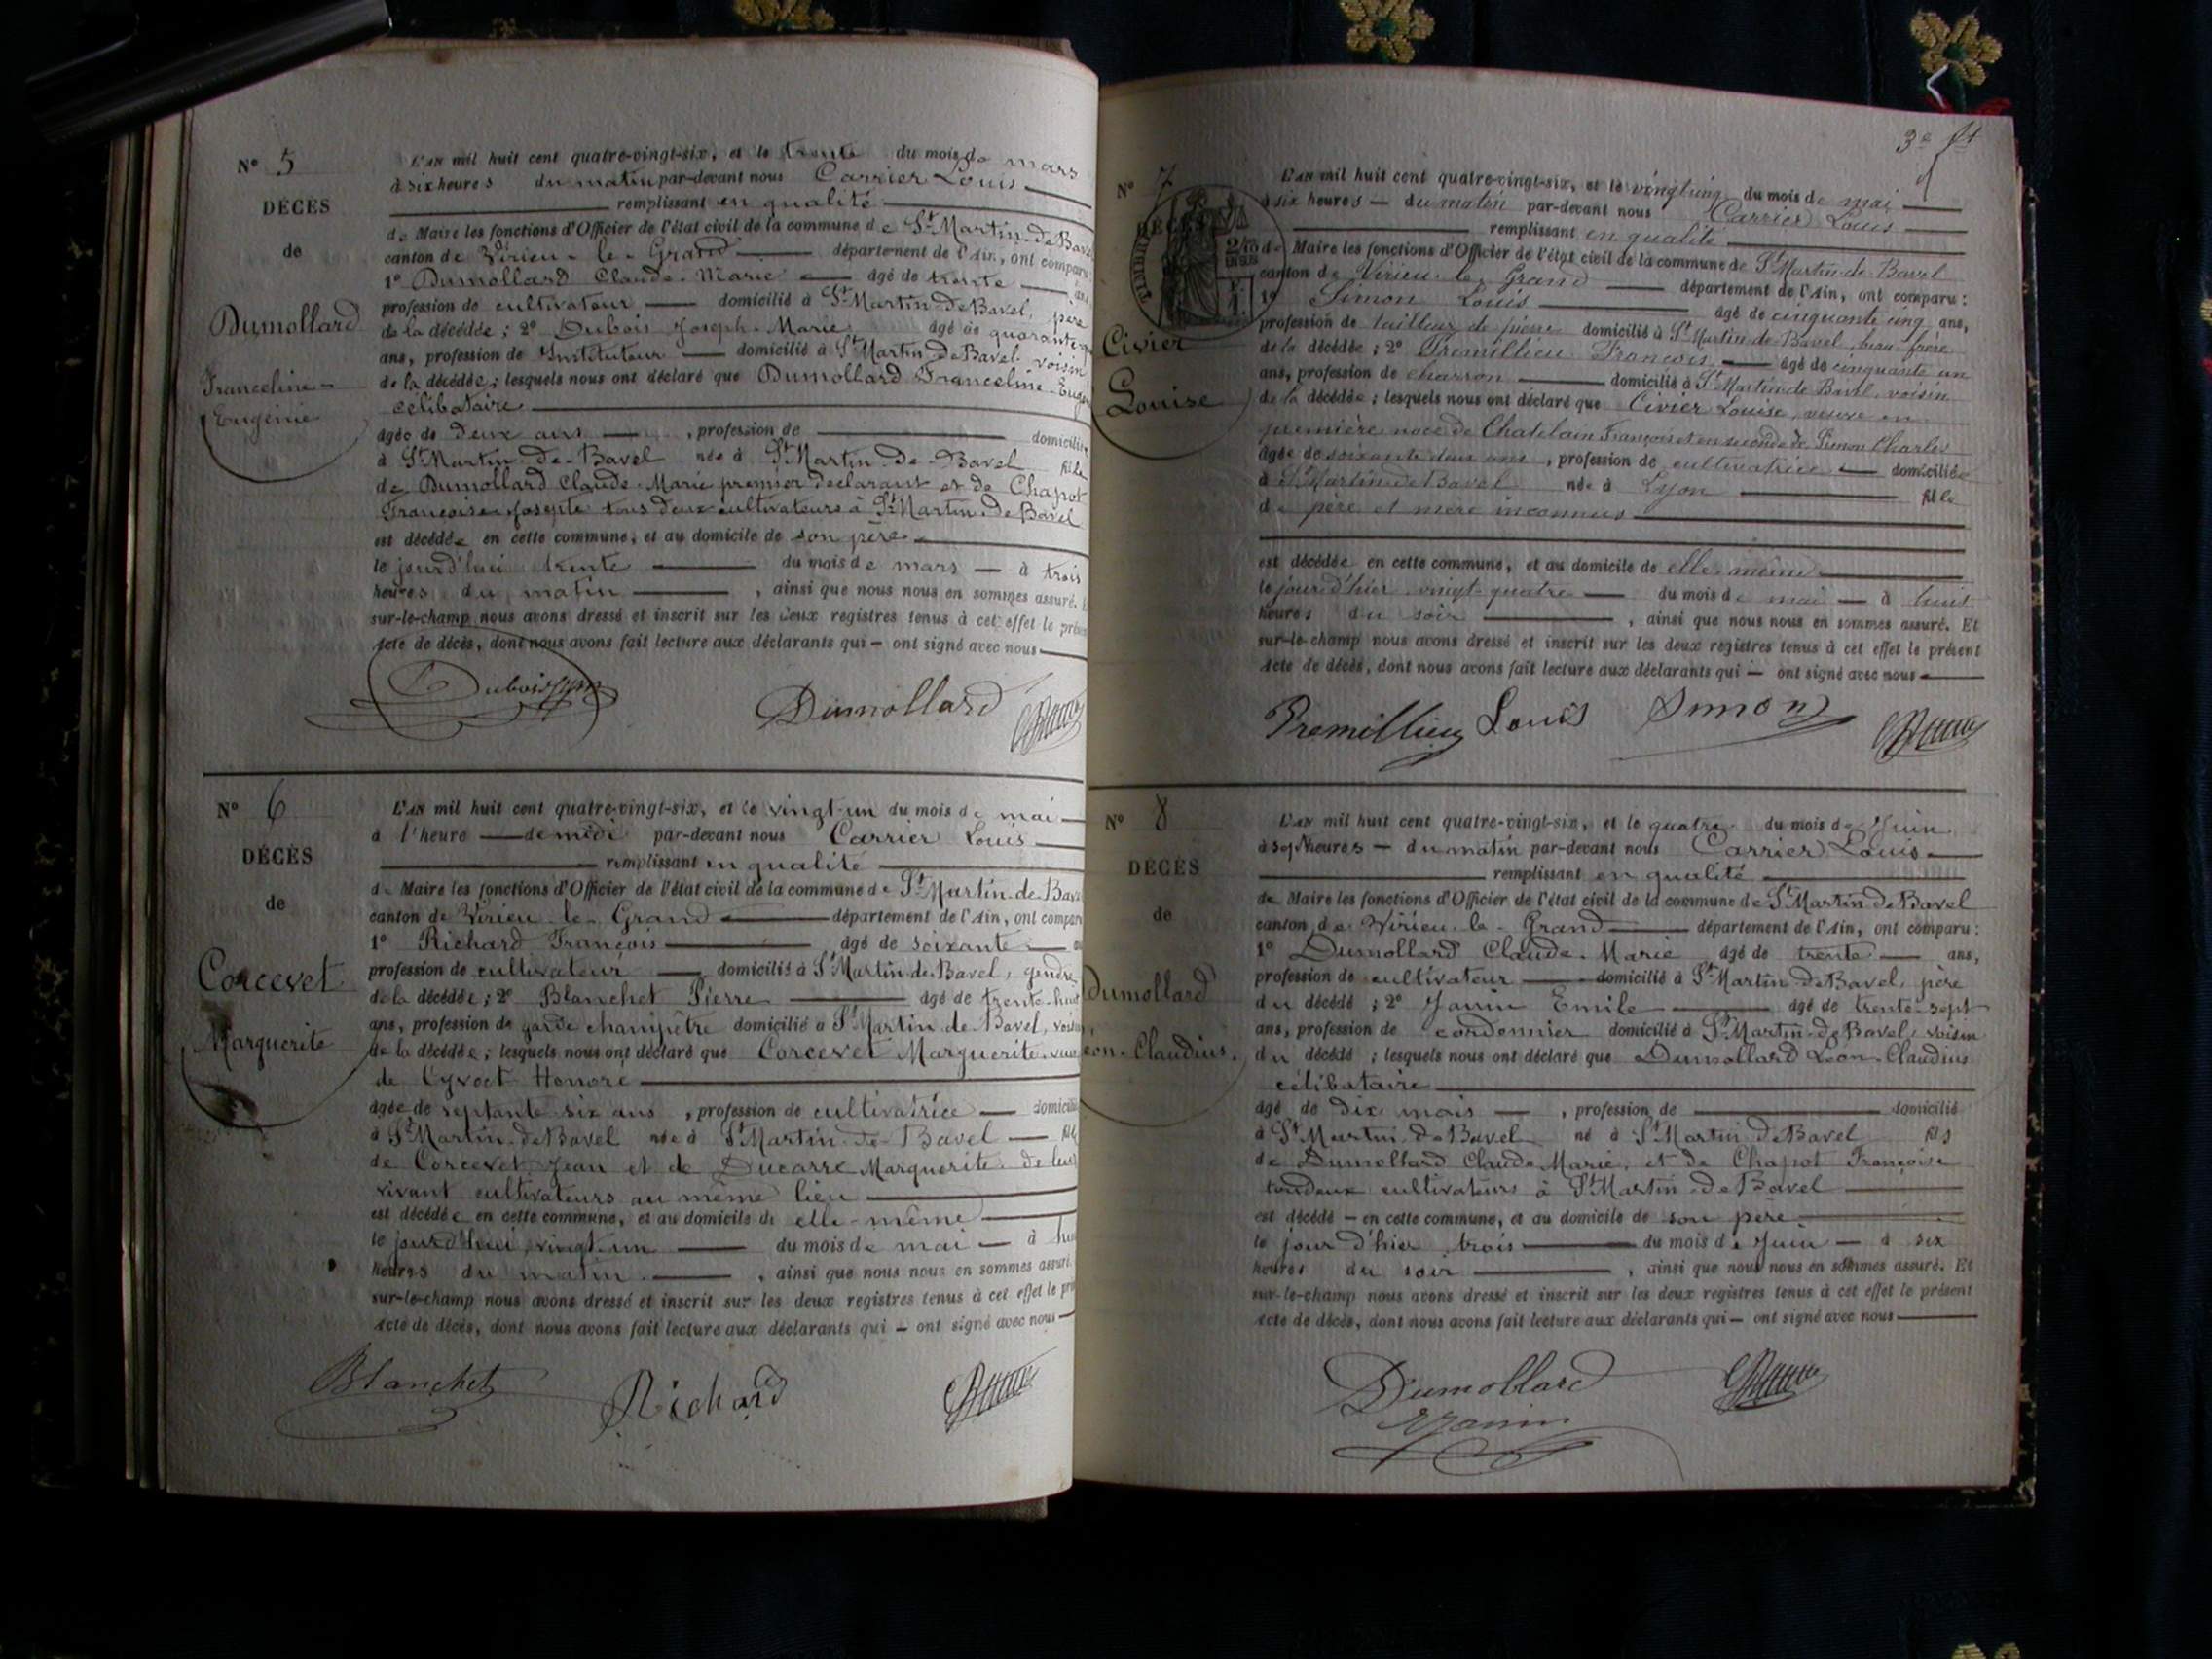 N° 5
DÉCÈS
de
Dumollard
Franceline-
Eugénie
L'AN mil huit cent quatre-vingt-six, et le trente du mois de mars
à six heures du matin par-devant nous Carrier Louis
remplissant en qualité
de Maire les fonctions d'Officier de l'état civil de la commune de St Martin-de Bavel
canton de Virieu-le-Grand département de l'Ain, ont comparu
1° Dumollard Claude-Marie âgé de trente ans
profession de cultivateur domicilié à St Martin-De Bavel, père
de la décédée; 2° Dubois Joseph-Marie âgé de quarante
ans, profession de Instituteur domicilié à St Martin De Bavel voisin
de la décédée; lesquels nous ont déclaré que Dumollard Franceline Eugé
célibataire
âgée de deux ans, profession de domiciliée
à St Martin-De-Bavel née à St Martin-De-Bavel fille
de Dumollard Claude-Marie premier déclarant et de Chapot
Françoise Josepte tous deux cultivateurs à St Martin-De Bavel
est décédée en cette commune, et au domicile de son père
le jourd'hui trente du mois de mars à trois
heures du matin, ainsi que nous nous en sommes assuré.
sur-le-champ nous avons dressé et inscrit sur les deux registres tenus à cet effet le présent
Acte de décès, dont nous avons fait lecture aux déclarants qui ont signé avec nous
Dubois
Dumollard
N° 6
DÉCÈS
de
Corcevet
Marguerite
L'AN mil huit cent quatre-vingt-six, et le vingt-un du mois de mai
à l'heure de midi par-devant nous Carrier Louis
remplissant en qualité
de Maire les fonctions d'Officier de l'état civil de la commune de St Martin-de-Bavel
canton de Virieu-le-Grand département de l'Ain, ont comparu
1° Richard François âgé de soixante
profession de cultivateur domicilié à St Martin-de-Bavel, gendre
de la décédée; 2° Blanchet Pierre âgé de trente-huit
ans, profession de garde champêtre domicilié à St Martin de Bavel, voisin
de la décédée; lesquels nous ont déclaré que Corcevet Marguerite, vve
de Honoré
âgée de septante six ans, profession de cultivatrice domiciliée
à St Martin-de Bavel née à St Martin-de-Bavel fille
de Corcevet Jean et de Ducarre Marguerite de leur
vivant cultivateurs au même lieu
est décédée en cette commune, et au domicile de elle-même
le jourd'hui, vingt-un du mois de mai à hui
heures du matin, ainsi que nous nous en sommes assuré.
sur-le-champ nous avons dressé et inscrit sur les deux registres tenus à cet effet le pré
Acte de décès, dont nous avons fait lecture aux déclarants qui ont signé avec nous
Blanchet
Richard
3e ft
N° 7
DÉCÈS
Civier
Louise
L'AN mil huit cent quatre-vingt-six, et le vingt cinq du mois de mai
à six heures du matin par-devant nous Carrier Louis
remplissant en qualité
de Maire les fonctions d'Officier de l'état civil de la commune de St Martin-de Bavel
canton de Virieu-le-Grand département de l'Ain, ont comparu:
1° Simon Louis âgé de cinquante cinq ans,
profession de tailleur de pierre domicilié à St Martin-de-Bavel, beau frère
de la décédée; 2° Premillieu François âgé de cinquante un
ans, profession de charron domicilié à St Martin de Bavel, voisin
de la décédée; lesquels nous ont déclaré que Civier Louise, veuve en
première noce de Chatelain François et en seconde de Simon Charles
âgée de soixante deux ans, profession de cultivatrice domiciliée
à St Martin de Bavel née à Lyon fille
de père et mère inconnus
est décédée en cette commune, et au domicile de elle-même
le jour d'hier vingt-quatre du mois de mai à huit
heures du soir, ainsi que nous nous en sommes assuré. Et
sur-le-champ nous avons dressé et inscrit sur les deux registres tenus à cet effet le présent
Acte de décès, dont nous avons fait lecture aux déclarants qui ont signé avec nous
Premillieu Louis Simon
N° 8
DÉCÈS
de
Dumollard
éon-Claudius.
L'AN mil huit cent quatre-vingt-six, et le quatre du mois de Juin
à sept heures du matin par-devant nous Carrier Louis
remplissant en qualité
de Maire les fonctions d'Officier de l'état civil de la commune de St Martin De Bavel
canton de Virieu-le-Grand département de l'Ain, ont comparu:
1° Dumollard Claude-Marie âgé de trente ans,
profession de cultivateur domicilié à St Martin-De Bavel, père
du décédé; 2° Janin Emile âgé de trente-sept
ans, profession de cordonnier domicilié à St Martin-de Bavel, voisin
du décédé; lesquels nous ont déclaré que Dumollard Léon-Claudius
célibataire
âgé de dix mois, profession de domicilié
à St Martin-De Bavel né à St Martin De Bavel fils
de Dumollard Claude Marie, et de Chapot Françoise
tou deux cultivateurs à St Martin-De Bavel
est décédé en cette commune, et au domicile de son père
le jour d'hier trois du mois de Juin à six
heures du soir, ainsi que nous nous en sommes assuré. Et
sur-le-champ nous avons dressé et inscrit sur les deux registres tenus à cet effet le présent
Acte de décès, dont nous avons fait lecture aux déclarants qui ont signé avec nous
Dumollard
EJanin